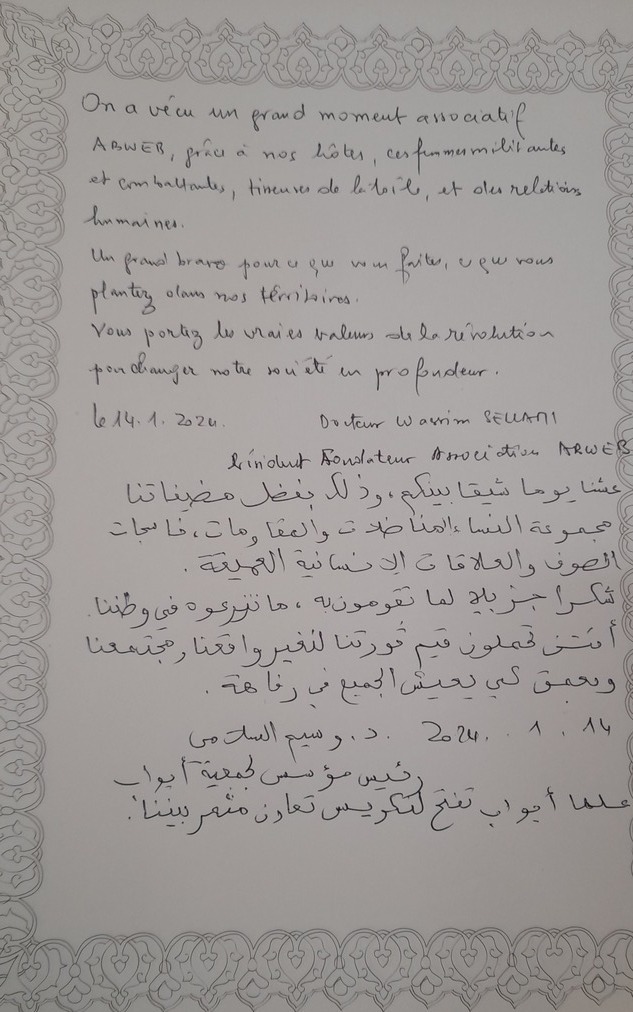 On a vécu un grand moment associatif
ABWEB, grâce à nos hôtes, ces femmes militantes
et combattantes, tisseuses de la toile, et des relations
humaines.
Un grand bravo pour ce que vous faites, ce que vous
plantez dans nos térritoires.
Vous portez les vraies valeurs de la révolution
pour changer notre société en profondeur.
le 14.1.2024. Docteur Wassim SELLAMI
Président Fondateur Association ABWEB
عشنا يوما شيقا بينكم، وذلك بفضل مضيفاتنا
مجموعة النساء المناضلات والمقاومات، ناسجات
الصوف والعلاقات الانسانية العميقة.
شكرا جزيلا لما تقومون به، ما تزرعوه في وطننا.
أنتن تحملون قيم ثورتنا لنغير واقعنا ومجتمعنا
وبعمق لكي يعيش الجميع في رفاهة.
14 . 1 . 2024 . د. وسيم السلامي
رئيس مؤسس لجمعية أبواب
علها أبواب تفتح لتكريس تعاون مثمر بيننا.